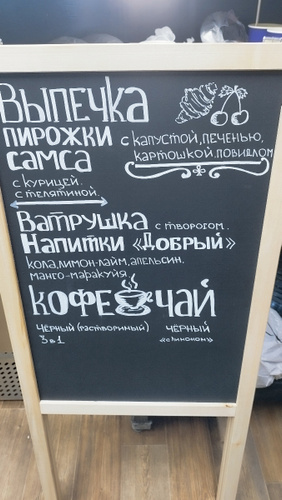 Выпечка
пирожки с капустой, печенью,
самса картошкой. повидлом
с курицей.
с телятиной.
Ватрушка с творогом.
Напитки «Добрый»
кола, лимон-лайм, апельсин.
манго-маракуйя
Кофе чай
чёрный (растворимый) чёрный
3в1